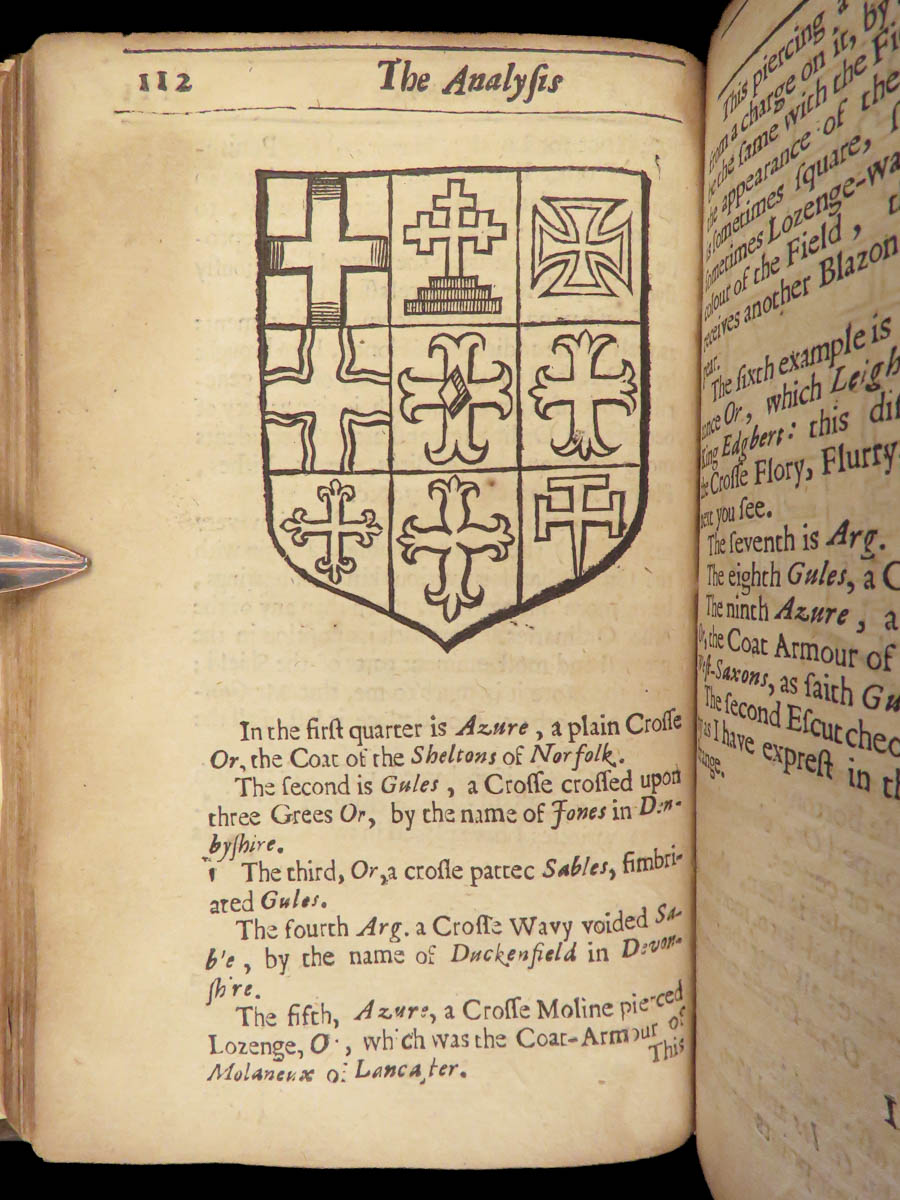 112 The Analyſis
In the firſt quarter is Azure, a plain Croſſe
Or, the Coat of the Sheltons of Norfolk.
The ſecond is Gules, a Croſſe croſſed upon
three Grees Or, by the name of Jones in Den-
byſhire.
The third, Or, a croſſe pattee Sables, fimbri-
ated Gules.
The fourth Arg. a Croſſe Wavy voided Sa-
b'e, by the name of Duckenfield in Devon-
ſhire.
The fifth, Azure, a Croſſe Moline pierced
Lozenge, O, which was the Coat-Armour of
Molaneux of Lancaſter.
This
This piercing a
from a charge on it, by
be the ſame with the Fi
the appearance of the
is ſometimes ſquare, ſ
ſometimes Lozenge-wa
colour of the Field, t
receives another Blazon
pear.
The ſixth example is
Or, which Leigh
King Edgbert: this dif
the Croſſe Flory, Flurry
here you ſee.
The ſeventh is Arg.
The eighth Gules, a C
The ninth Azure, a
Or, the Coat Armour of
Weſt-Saxons, as ſaith Gu
The ſecond Eſcutcheo
as I have expreſt in th